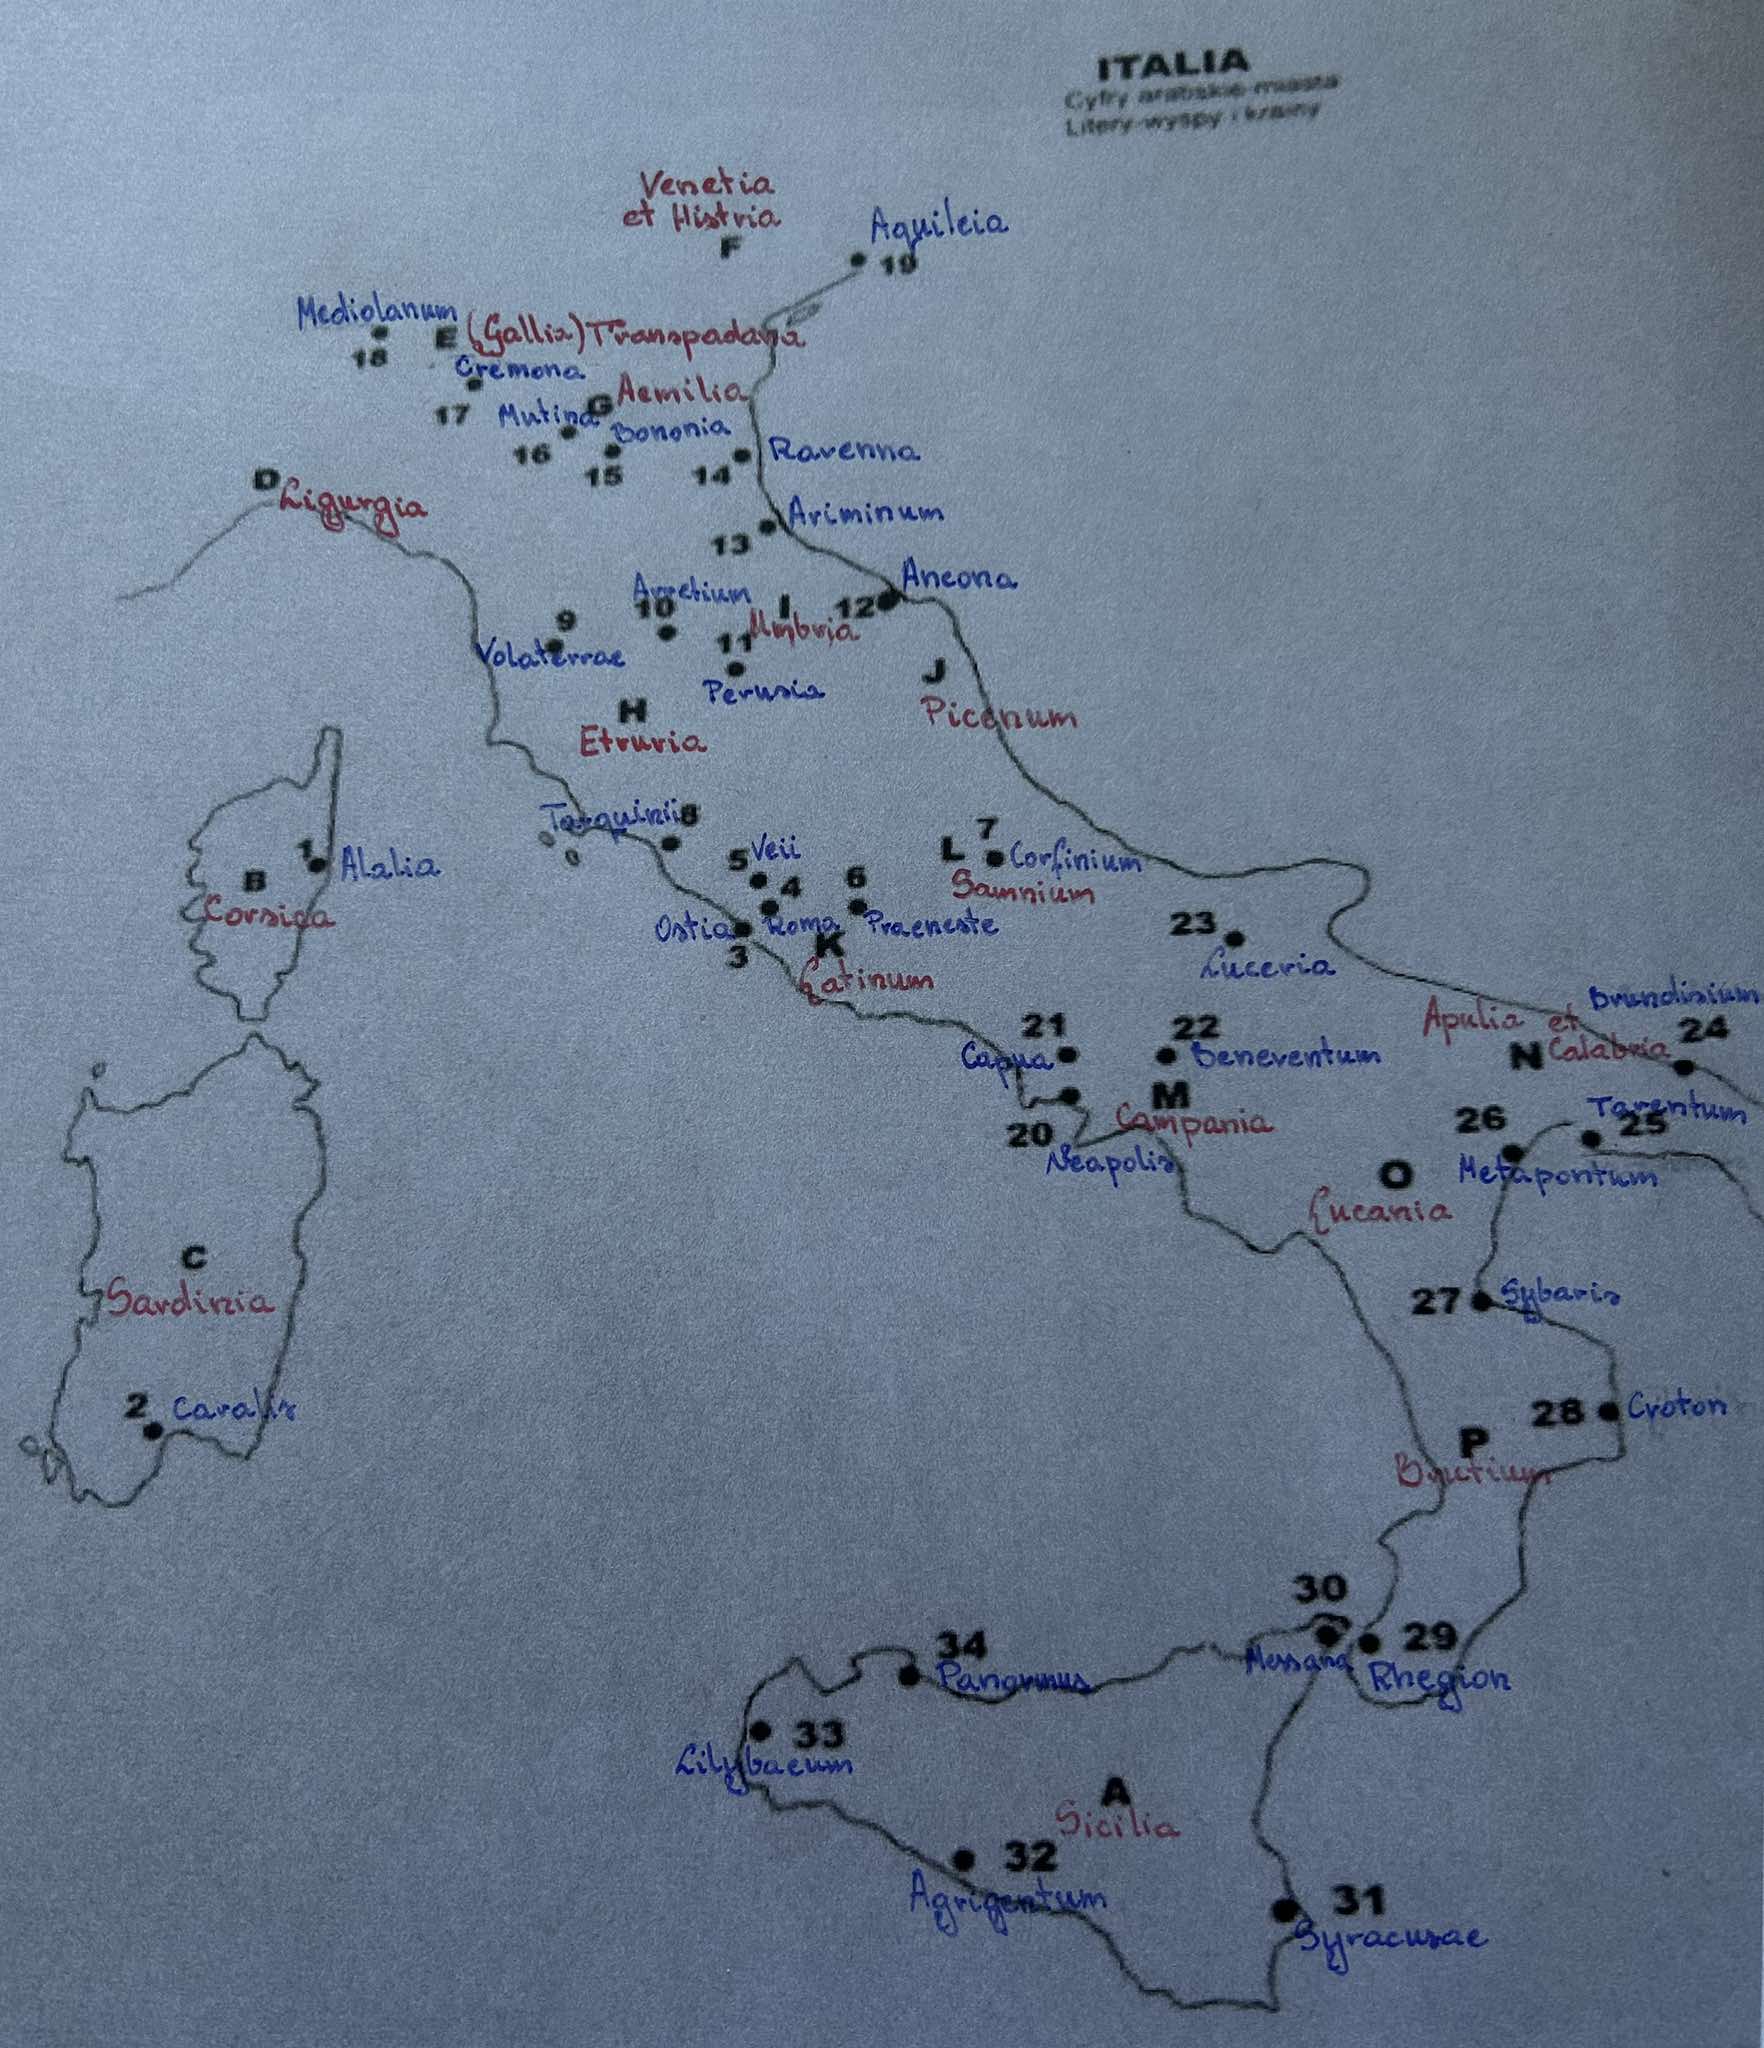 ITALIA
Cyfry arabskie-miasta
Litery-wyspy i krainy
Venetia
et Histria
F
Aquileia
19
Mediolanum
18
E (Gallia) Transpadana
Cremona
17
G Aemilia
Mutina
16
Bononia
15
14 Ravenna
D
Ligurgia
Ariminum
13
Ancona
12
Arretium
10
I
Umbria
9
Volaterrae
11
Perusia
J
Picenum
H
Etruria
Tarquinii 8
1 Alalia
B
Corsica
5 Veii
4
Roma
6
Praeneste
7
L Corfinium
Samnium
Ostia
3
K
Latinum
23
Luceria
Brundisium
24
Apulia et
N Calabria
21
Capua
22
Beneventum
M
Campania
20
Neapolis
Tarentum
25
26
Metapontum
O
Lucania
C
Sardinia
27 Sybaris
2 Caralis
28 Croton
P
Brutium
30
Messana
29
Rhegion
34
Panormus
33
Lilybaeum
A
Sicilia
32
Agrigentum
31
Syracusae